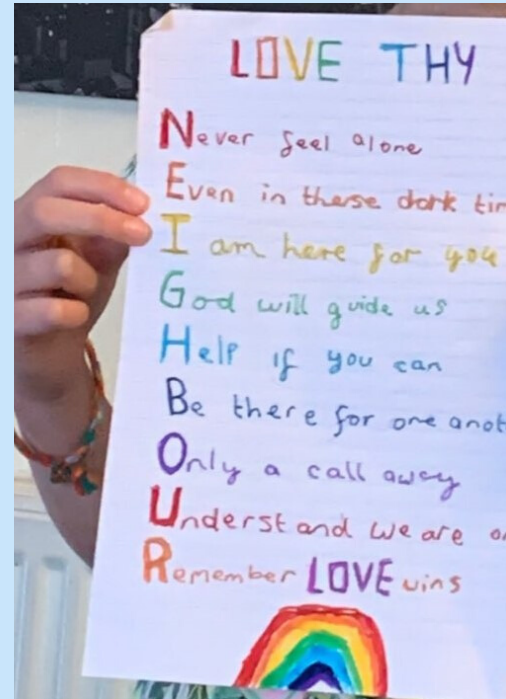 LOVE THY
Never feel alone
Even in these dark
I am here for you
God will guide us
Help if you can
Be there for one
Only a call away
Understand we are
Remember LOVE wins